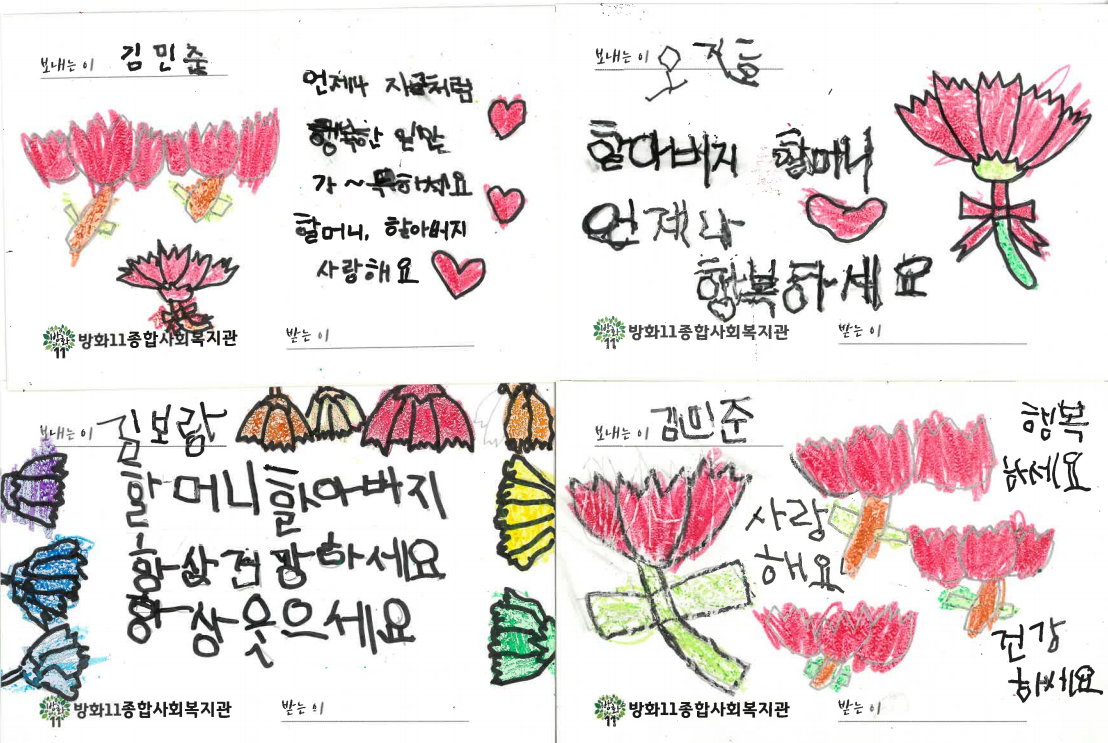 보내는 이 김민준
언제나 지금처럼
행복한 일만
가~득하세요
할머니, 할아버지
사랑해요
방화11종합사회복지관
받는 이
보내는 이 지호
할아버지 할머니
언제나
행복하세요
방화11종합사회복지관
받는 이
보내는 이 김보람
할머니 할아버지
항상 건강하세요
항상 웃으세요
방화11종합사회복지관
받는 이
보내는 이 김민준
행복
하세요
사랑
해요
건강
하세요
방화11종합사회복지관
받는 이